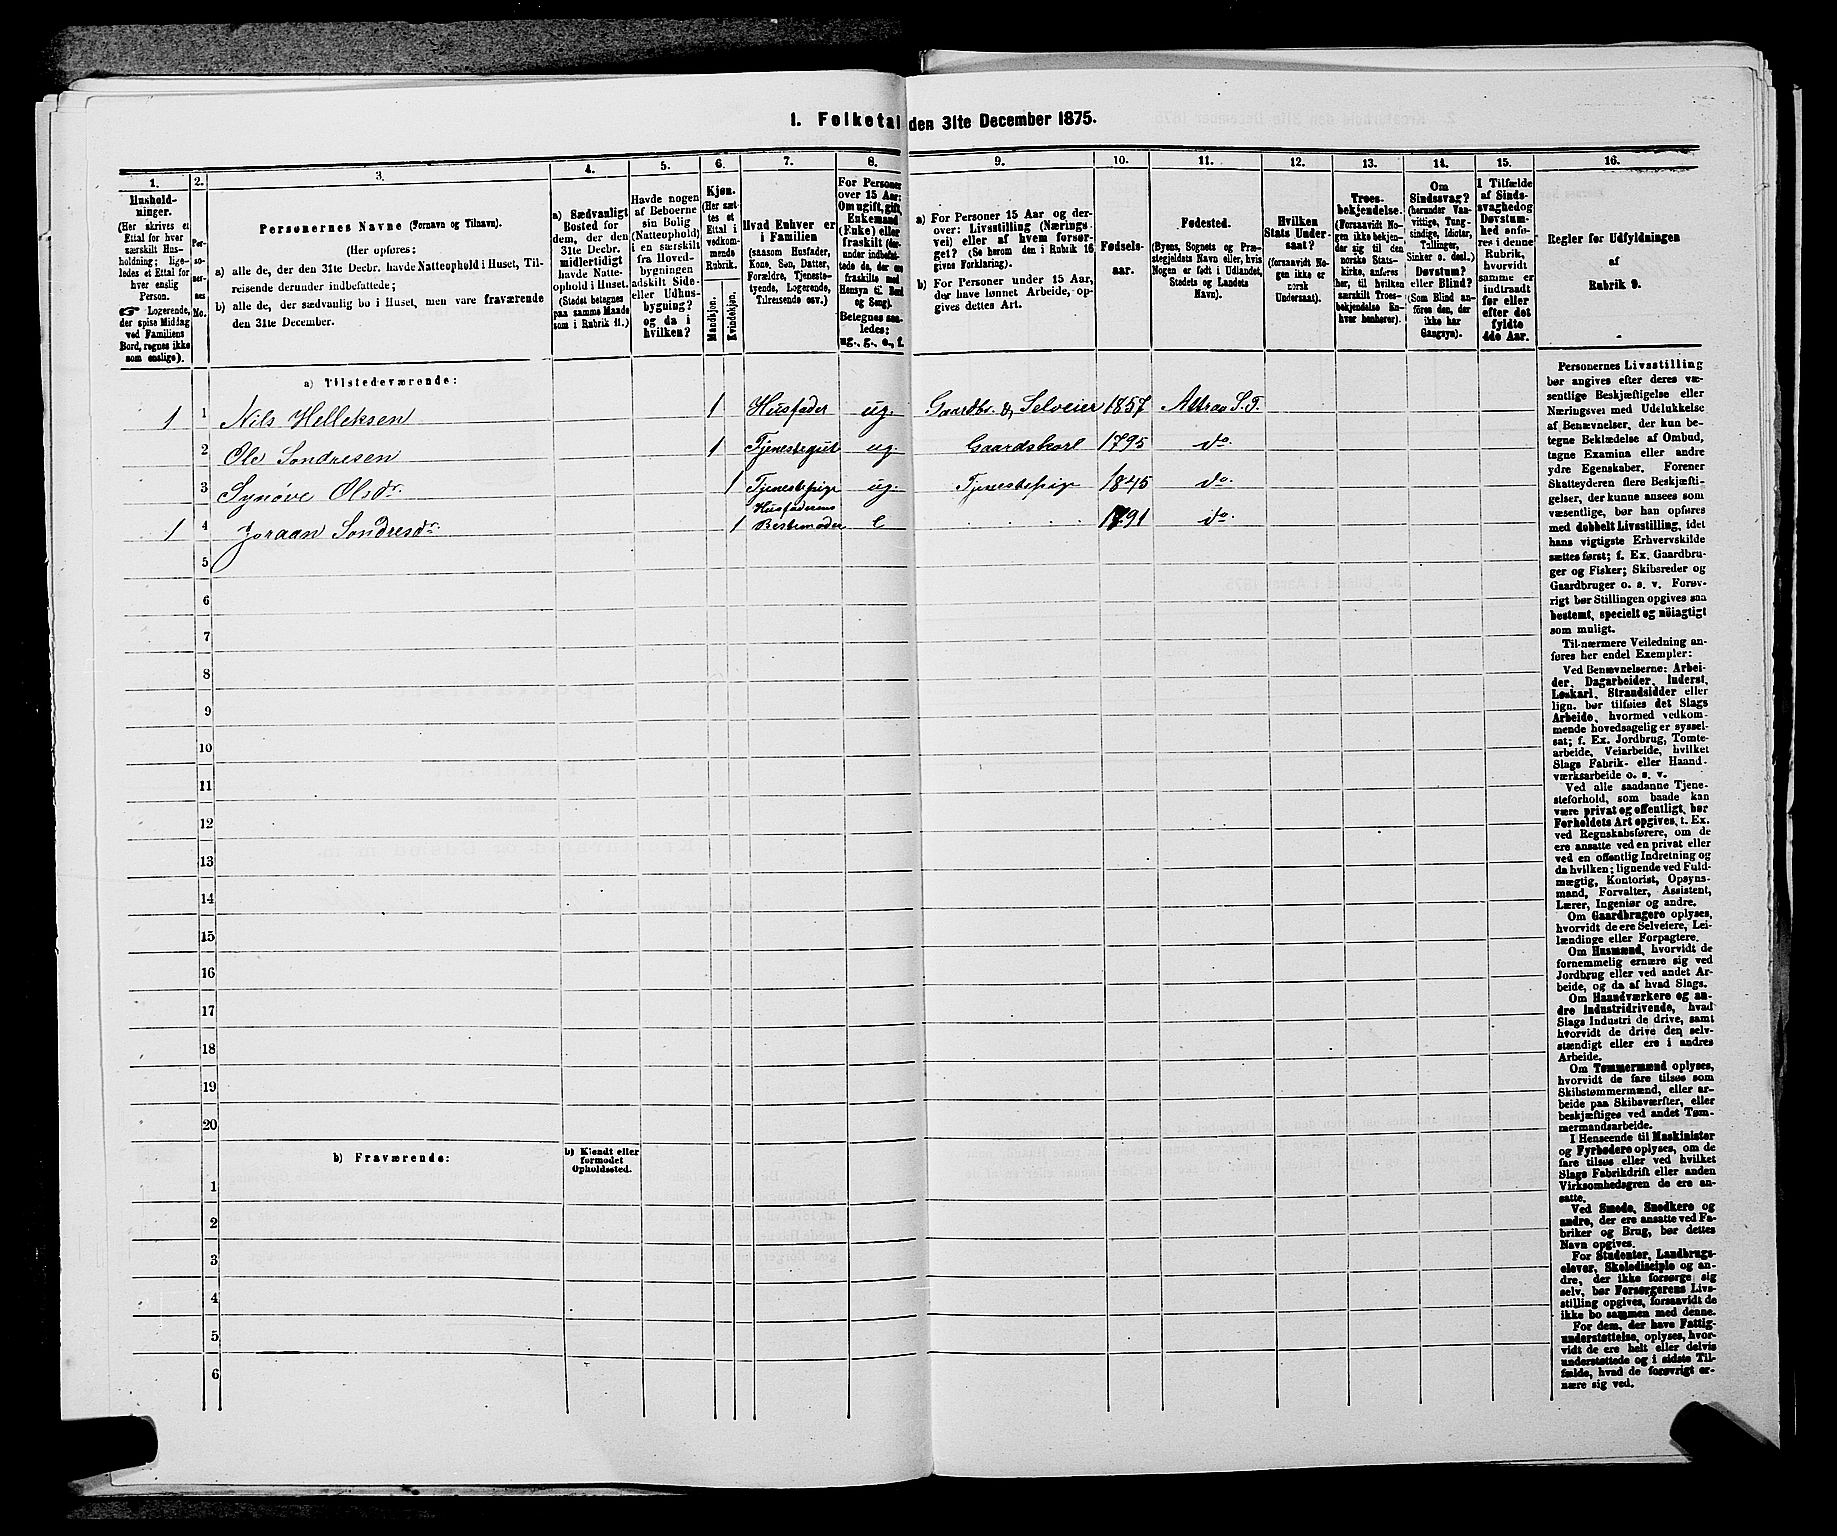 1. Folketal den 31te December 1875.
1.
2.
3.
4.
5.
6.
7.
8.
9.
10.
11.
12.
13.
14.
15.
16.
Hushold-
ninger.
(Her skrives et
Ettal for hver
særskilt Hus-
holdning; lige-
ledes et Ettal for
hver enslig
Person.
☞ Logerende,
der spise Middag
ved Familiens
Bord, regnes ikke
som enslige).
Per-
so-
ner-
nes
No.
Personernes Navne (Fornavn og Tilnavn).
(Her opføres:
a) alle de, der den 31te Decbr. havde Natteophold i Huset, Til-
reisende derunder indbefattede;
b) alle de, der sædvanlig bo i Huset, men vare fraværende
den 31te December.
a) Sædvanligt
Bosted for
dem, der den
31te Decbr.
midlertidigt
havde Natte-
ophold i Huset.
(Stedet betegnes
paa samme Maade
som i Rubrik 11.)
Havde nogen
af Beboerne
sin Bolig
(Natteophold)
i en særskilt
fra Hoved-
bygningen
adskilt Side-
eller Udhus-
bygning?
og da i
hvilken?
Kjøn.
(Her sæt-
tes et
Ettal i
vedkom-
mende
Rubrik.
Mandkjøn.
Kvindekjøn.
Hvad Enhver er
i Familien
(saasom Husfader,
Kone, Søn, Datter,
Forældre, Tjeneste-
tyende, Logerende,
Tilreisende osv.)
For Personer
over 15 Aar:
Om ugift, gift,
Enkemand
(Enke) eller
fraskilt (der-
under indbefat-
tede de, der ere
fraskilte med
Hensyn til Bord
og Seng).
Betegnes saa-
ledes:
ug., g., e., f.
a) For Personer 15 Aar og der-
over: Livsstilling (Nærings-
vei) eller af hvem forsør-
get? (Se herom den i Rubrik 16
givne Forklaring).
b) For Personer under 15 Aar,
der have lønnet Arbeide, op-
gives dettes Art.
Fødsels-
aar.
Fødested.
(Byens, Sognets og Præ-
stegjeldets Navn eller, hvis
Nogen er født i Udlandet,
Stedets og Landets
Navn).
Hvilken
Stats Under-
saat?
(forsaavidt No-
gen ikke er
norsk
Undersaat).
Troes-
bekjendelse.
(Forsaavidt No-
gen ikke bekjen-
der sig til den
norske Stats-
kirke, anføres
her, til hvilken
særskilt Troes-
bekjendelse En-
hver henhører).
Om
Sindssvag?
(herunder Van-
vittige, Tung-
sindige, Idioter,
Tullinger,
Sinker o. desl.)
Døvstum?
eller Blind?
(Som Blind an-
føres den, der
ikke har
Gangsyn).
I Tilfælde
af Sinds-
svaghed og
Døvstum-
hed anfø-
res i denne
Rubrik,
hvorvidt
samme er
indtraadt
før eller
efter det
fyldte
4de Aar.
Regler for Udfyldningen
af
Rubrik 9.
a) Tilstedeværende:
1 1 Nils Helleksen 1 Husfader ug. Gaardbr. & Selveier 1857 Attraa S.T.
2 Ole Sondresen 1 Tjenestegut ug. Gaardskarl 1795 do.
3 Synøve Olsdr. 1 Tjenestepige ug. Tjenestepige 1845 do.
Husfaderens
1 4 Joraan Sondresdr. 1 Bestemoder e 1791 do.
5
6
7
8
9
10
11
12
13
14
15
16
17
18
19
20
b) Fraværende:
b) Kjendt eller
formodet
Opholdssted.
1
2
3
4
5
6
Personernes Livsstilling
bør angives efter deres væ-
sentlige Beskjæftigelse eller
Næringsvei med Udelukkelse
af Benævnelser, der kun be-
tegne Beklædelse af Ombud,
tagne Examina eller andre
ydre Egenskaber. Forener
Skatteyderen flere Beskjæfti-
gelser, der kunne ansees som
væsentlige, bør han opføres
med dobbelt Livsstilling, idet
hans vigtigste Erhvervskilde
sættes først; f. Ex. Gaardbru-
ger og Fisker; Skibsreder og
Gaardbruger o. s. v. Forøv-
rigt bør Stillingen opgives saa
bestemt, specielt og nøiagtigt
som muligt.
Til nærmere Veiledning an-
føres her endel Exempler:
Ved Benævnelserne: Arbei-
der, Dagarbeider, Inderst,
Løskarl, Strandsidder eller
lign. bør tilføies det Slags
Arbeide, hvormed vedkom-
mende hovedsagelig er syssel-
sat; f. Ex. Jordbrug, Tomte-
arbeide, Veiarbeide, hvilket
Slags Fabrik- eller Haand-
værksarbeide o. s. v.
Ved alle saadanne Tjene-
steforhold, som baade kan
være privat og offentligt, bør
Forholdets Art opgives, t. Ex.
ved Regnskabsførere, om de
ere ansatte ved en privat eller
ved en offentlig Indretning og
da hvilken; lignende ved Fuld-
mægtig, Kontorist, Opsyns-
mand, Forvalter, Assistent,
Lærer, Ingeniør og andre.
Om Gaardbrugere oplyses,
hvorvidt de ere Selveiere, Lei-
lændinge eller Forpagtere.
Om Husmænd, hvorvidt de
fornemmelig ernære sig ved
Jordbrug eller ved andet Ar-
beide, og da af hvad Slags.
Om Haandværkere og an-
dre Industridrivende, hvad
Slags Industri de drive, samt
hvorvidt de drive den selv-
stændigt eller ere i andres
Arbeide.
Om Tømmermænd oplyses,
hvorvidt de fare tilsøs som
Skibstømmermænd, eller ar-
beide paa Skibsværfter, eller
beskjæftiges ved andet Tøm-
mermandsarbeide.
I Henseende til Maskinister
og Fyrbødere oplyses, om de
fare tilsøs eller ved hvilket
Slags Fabrikdrift eller anden
Virksomhedsgren de ere an-
satte.
Ved Smede, Snedkere og
andre, der ere ansatte ved Fa-
briker og Brug, bør dettes
Navn opgives.
For Studenter, Landbrugs-
elever, Skoledisciple og an-
dre, der ikke forsørge sig
selv, bør Forsørgerens Livs-
stilling opgives, forsaavidt de
ikke bo sammen med denne.
For dem, der have Fattig-
understøttelse, oplyses, hvor-
vidt de ere helt eller delvis
understøttede og i sidste Til-
fælde, hvad de forøvrigt er-
nære sig ved.